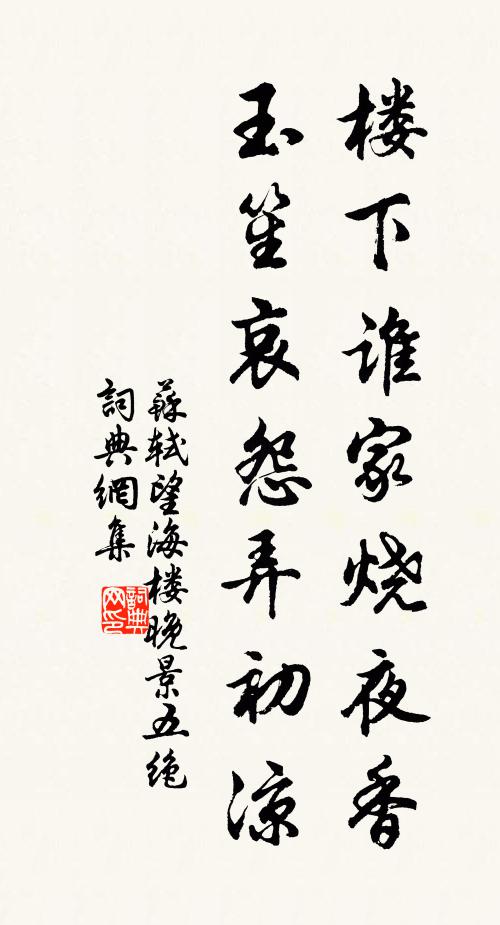 楼下谁家烧夜香
玉笙哀怨弄初凉
蘇軾望海楼晚景五绝
詞典網集
詞典网印